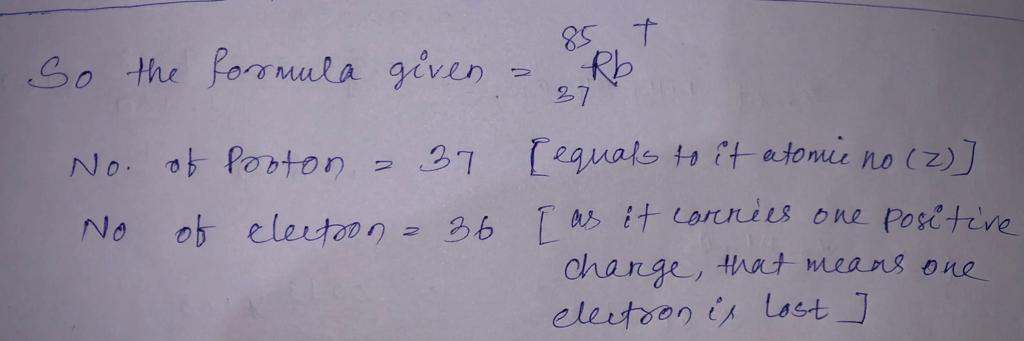 So the formula given = ⁸⁵₃₇Rb⁺
No. of Proton = 37 [equals to it atomic no (z)]
No of electron = 36 [as it carries one positive
charge, that means one
electron is lost]